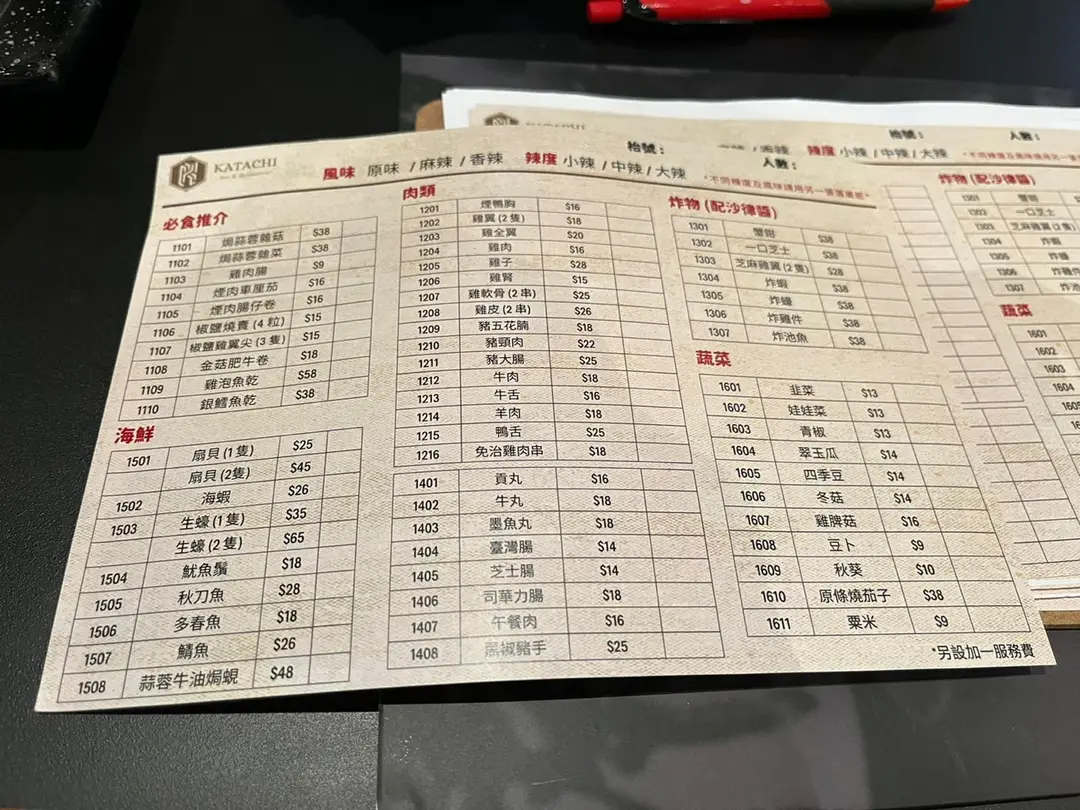 KATACHI
風味 原味 / 麻辣 / 香辣 辣度 小辣 / 中辣 / 大辣
枱號：
人數：
必食推介
1101 焗蒜蓉雜菇 $38
1102 焗蒜蓉雜菜 $38
1103 雞肉腸 $9
1104 煙肉車厘茄 $16
1105 煙肉腸仔卷 $16
1106 椒鹽燒賣 (4 粒) $15
1107 椒鹽雞翼尖 (3 隻) $15
1108 金菇肥牛卷 $18
1109 雞泡魚乾 $58
1110 銀鱈魚乾 $38
海鮮
1501 扇貝 (1 隻) $25
扇貝 (2隻) $45
1502 海蝦 $26
1503 生蠔 (1 隻) $35
生蠔 (2 隻) $65
1504 魷魚鬚 $18
1505 秋刀魚 $28
1506 多春魚 $18
1507 鯖魚 $26
1508 蒜蓉牛油焗蜆 $48
肉類
1201 煙鴨胸 $16
1202 雞翼 (2 隻) $18
1203 雞全翼 $20
1204 雞肉 $16
1205 雞子 $28
1206 雞腎 $15
1207 雞軟骨 (2 串) $25
1208 雞皮 (2 串) $26
1209 豬五花腩 $18
1210 豬頸肉 $22
1211 豬大腸 $25
1212 牛肉 $18
1213 牛舌 $16
1214 羊肉 $18
1215 鴨舌 $25
1216 免治雞肉串 $18
1401 貢丸 $16
1402 牛丸 $18
1403 墨魚丸 $18
1404 臺灣腸 $14
1405 芝士腸 $14
1406 司華力腸 $18
1407 午餐肉 $16
1408 椒豬手 $25
炸物 (配沙律醬)
1301 蟹鉗 $38
1302 一口芝士 $38
1303 芝麻雞翼 (2 隻) $28
1304 炸蝦 $38
1305 炸蠔 $38
1306 炸雞件 $38
1307 炸池魚 $38
蔬菜
1601 韭菜 $13
1602 娃娃菜 $13
1603 青椒 $13
1604 翠玉瓜 $14
1605 四季豆 $14
1606 冬菇 $14
1607 雞脾菇 $16
1608 豆卜 $9
1609 秋葵 $10
1610 原條燒茄子 $38
1611 粟米 $9
*另設加一服務費
KATACHI
香辣 辣度 小辣 / 中辣 / 大辣
枱號：
人數：
炸物 (配沙律醬)
1301 蟹鉗
1302 一口芝士
1303 芝麻雞翼 (2 隻)
1304 炸蝦
1305 炸蠔
1306 炸雞件
1307 炸池
蔬菜
1601
1602
1603
1604